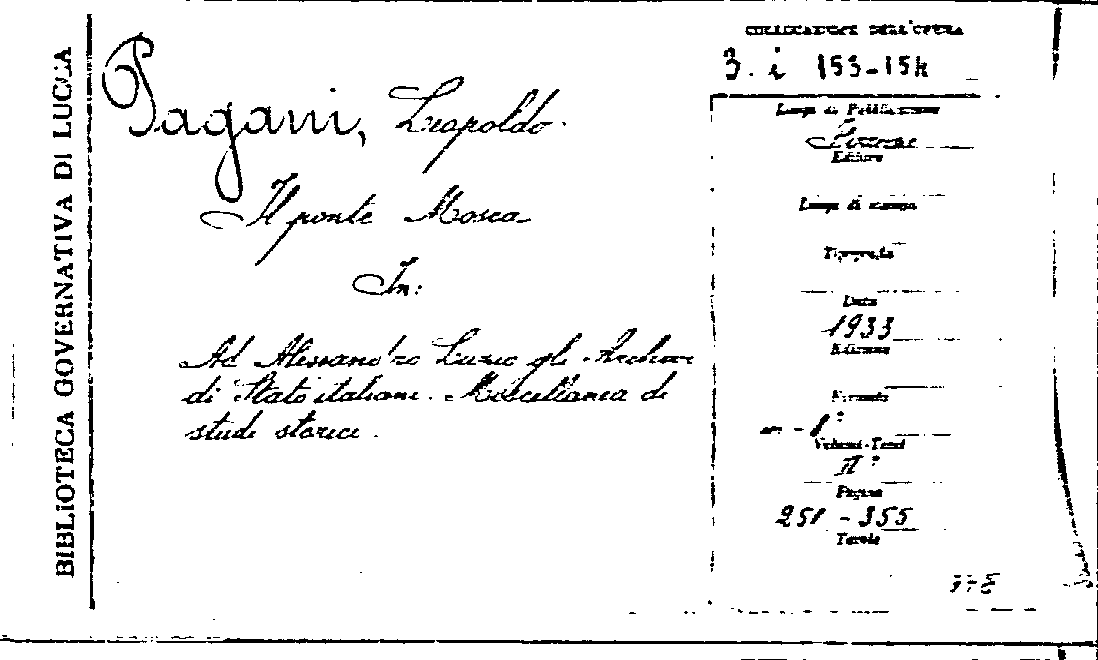 BIBLIOTECA GOVERNATIVA DI LUCCA
Pagani, Leopoldo.
Il ponte Mosca
In:
Ad Alessandro Luzio gli Archivi
di Stato italiani. Miscellanea di
studi storici.
COLLOCAZIONE DELL'OPERA
3. i 153-154
Luogo di Pubblicazione
Firenze
Editore
Luogo di stampa
Tipografia
Data
1933
Edizione
Formato
in-8°
Volumi-Tomi
II°
Pagine
251-355
Tavole